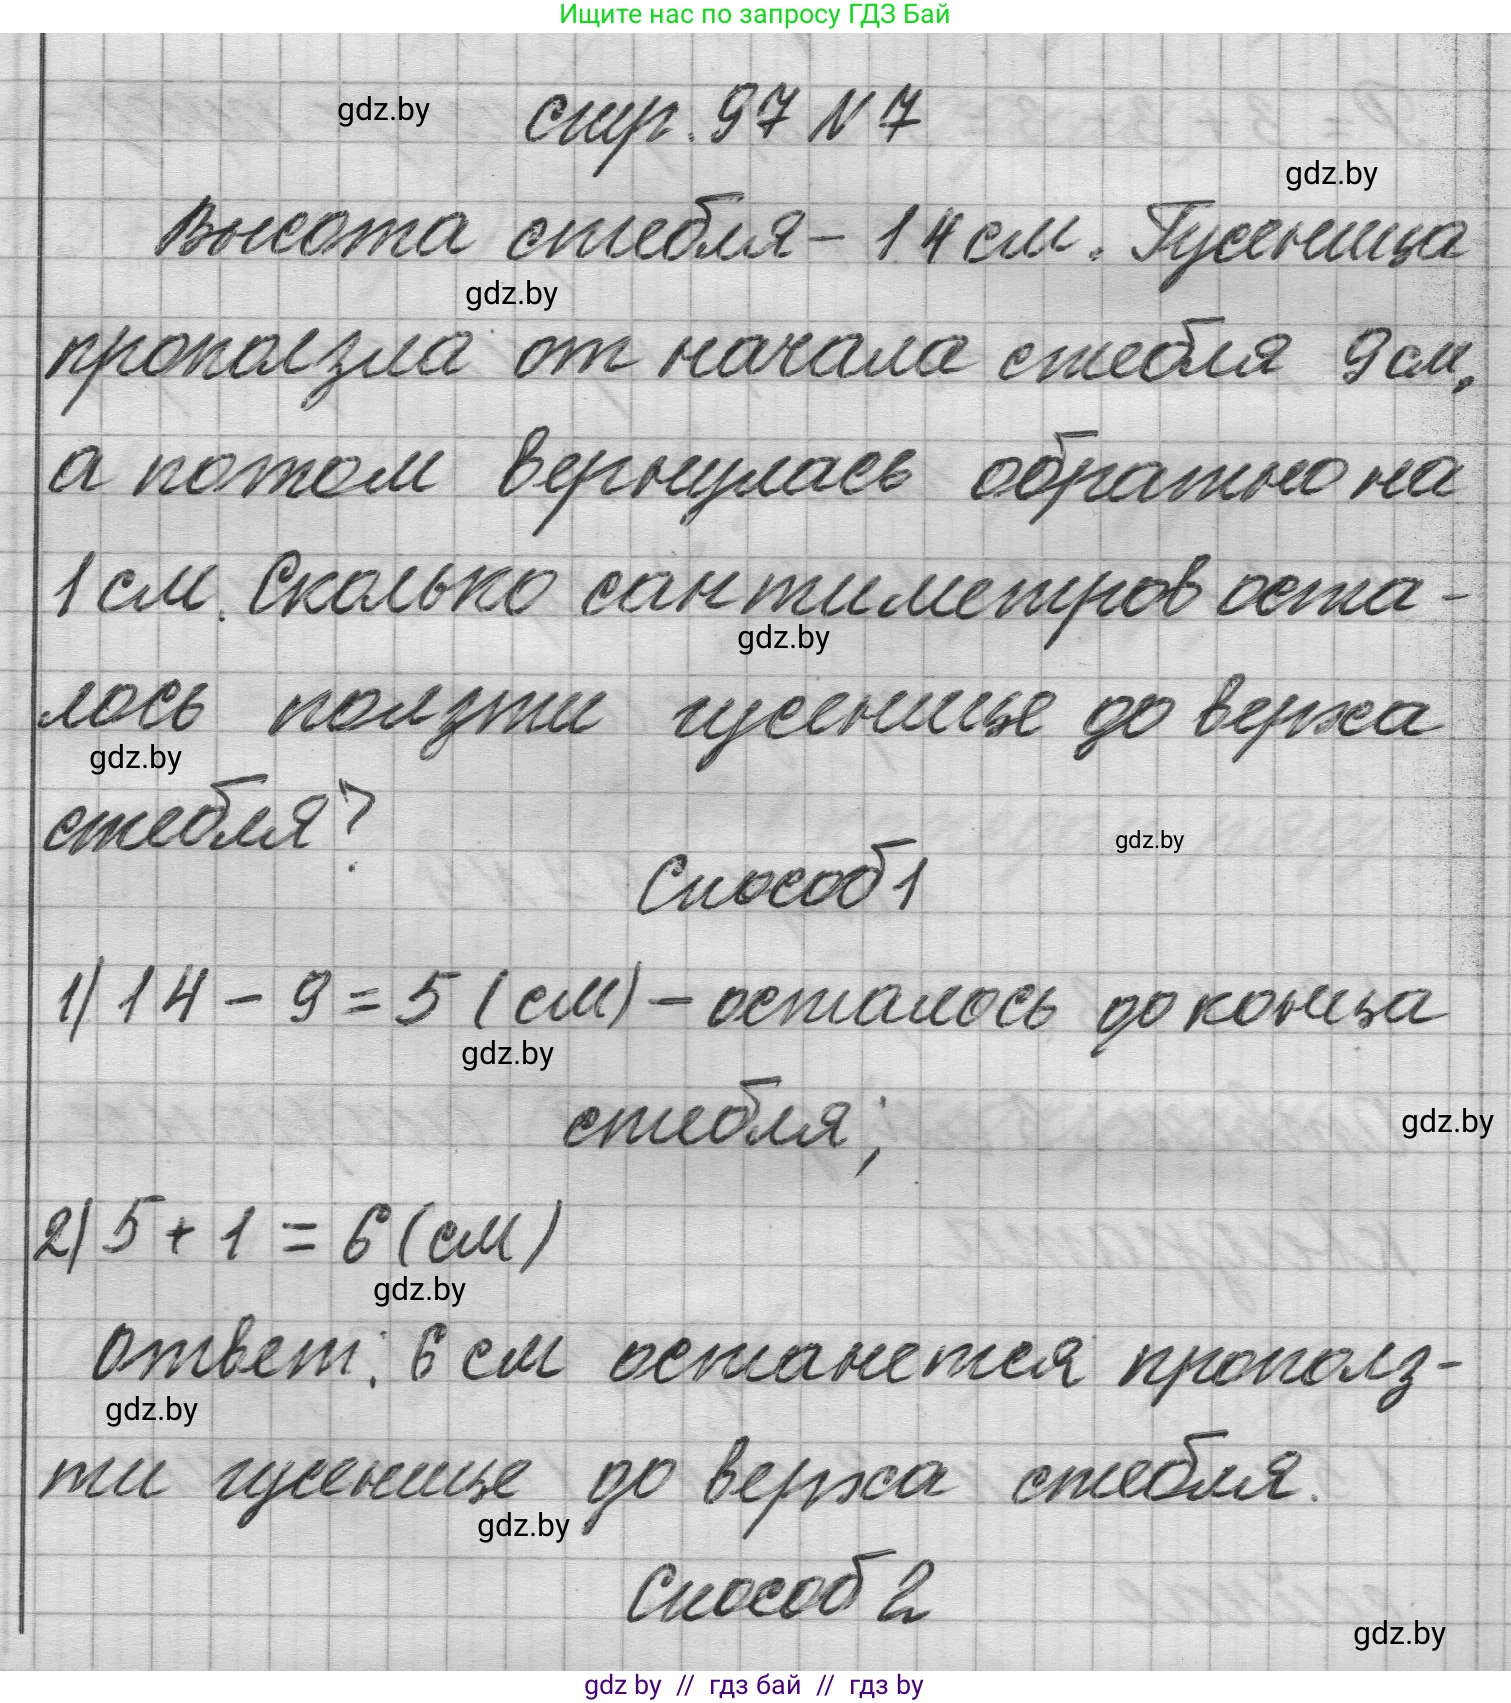 Ищите нас по запросу ГДЗ Бай
gdz.by
стр. 97 N 7
gdz.by
Высота стебля – 14 см. Гусеница
gdz.by
проползла от начала стебля 9 см,
а потом вернулась обратно на
1 см. Сколько сантиметров оста-
gdz.by
лось ползти гусенице до верха
gdz.by
стебля?
gdz.by
Способ 1
1) 14 - 9 = 5 (см) – осталось до конца
gdz.by
стебля;
gdz.by
2) 5 + 1 = 6 (см)
gdz.by
Ответ: 6 см останется прополз-
gdz.by
ти гусенице до верха стебля.
gdz.by
Способ 2
gdz.by
gdz by // гдз бай // гдз by